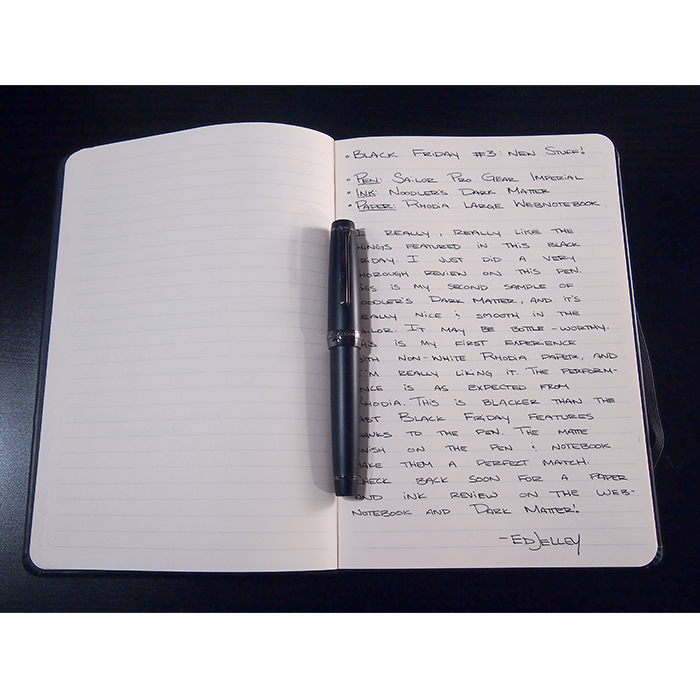 • BLACK FRIDAY #3: NEW STUFF!
• PEN: SAILOR PRO GEAR IMPERIAL
• INK: NOODLER'S DARK MATTER
• PAPER: RHODIA LARGE WEBNOTEBOOK
I REALLY, REALLY LIKE THE
HINGS FEATURED IN THIS BLACK
RIDAY. I JUST DID A VERY
HOROUGH REVIEW ON THIS PEN.
HIS IS MY SECOND SAMPLE OF
OODLER'S DARK MATTER, AND IT'S
EALLY NICE & SMOOTH IN THE
AILOR. IT MAY BE BOTTLE-WORTHY.
HIS IS MY FIRST EXPERIENCE
ITH NON-WHITE RHODIA PAPER, AND
I'M REALLY LIKING IT. THE PERFORM-
NCE IS AS EXPECTED FROM
HODIA. THIS IS BLACKER THAN THE
AST BLACK FRIDAY FEATURES
HANKS TO THE PEN. THE MATTE
NISH ON THE PEN & NOTEBOOK
MAKE THEM A PERFECT MATCH.
CHECK BACK SOON FOR A PAPER
AND INK REVIEW ON THE WEB-
NOTEBOOK AND DARK MATTER!
- ED JELLEY